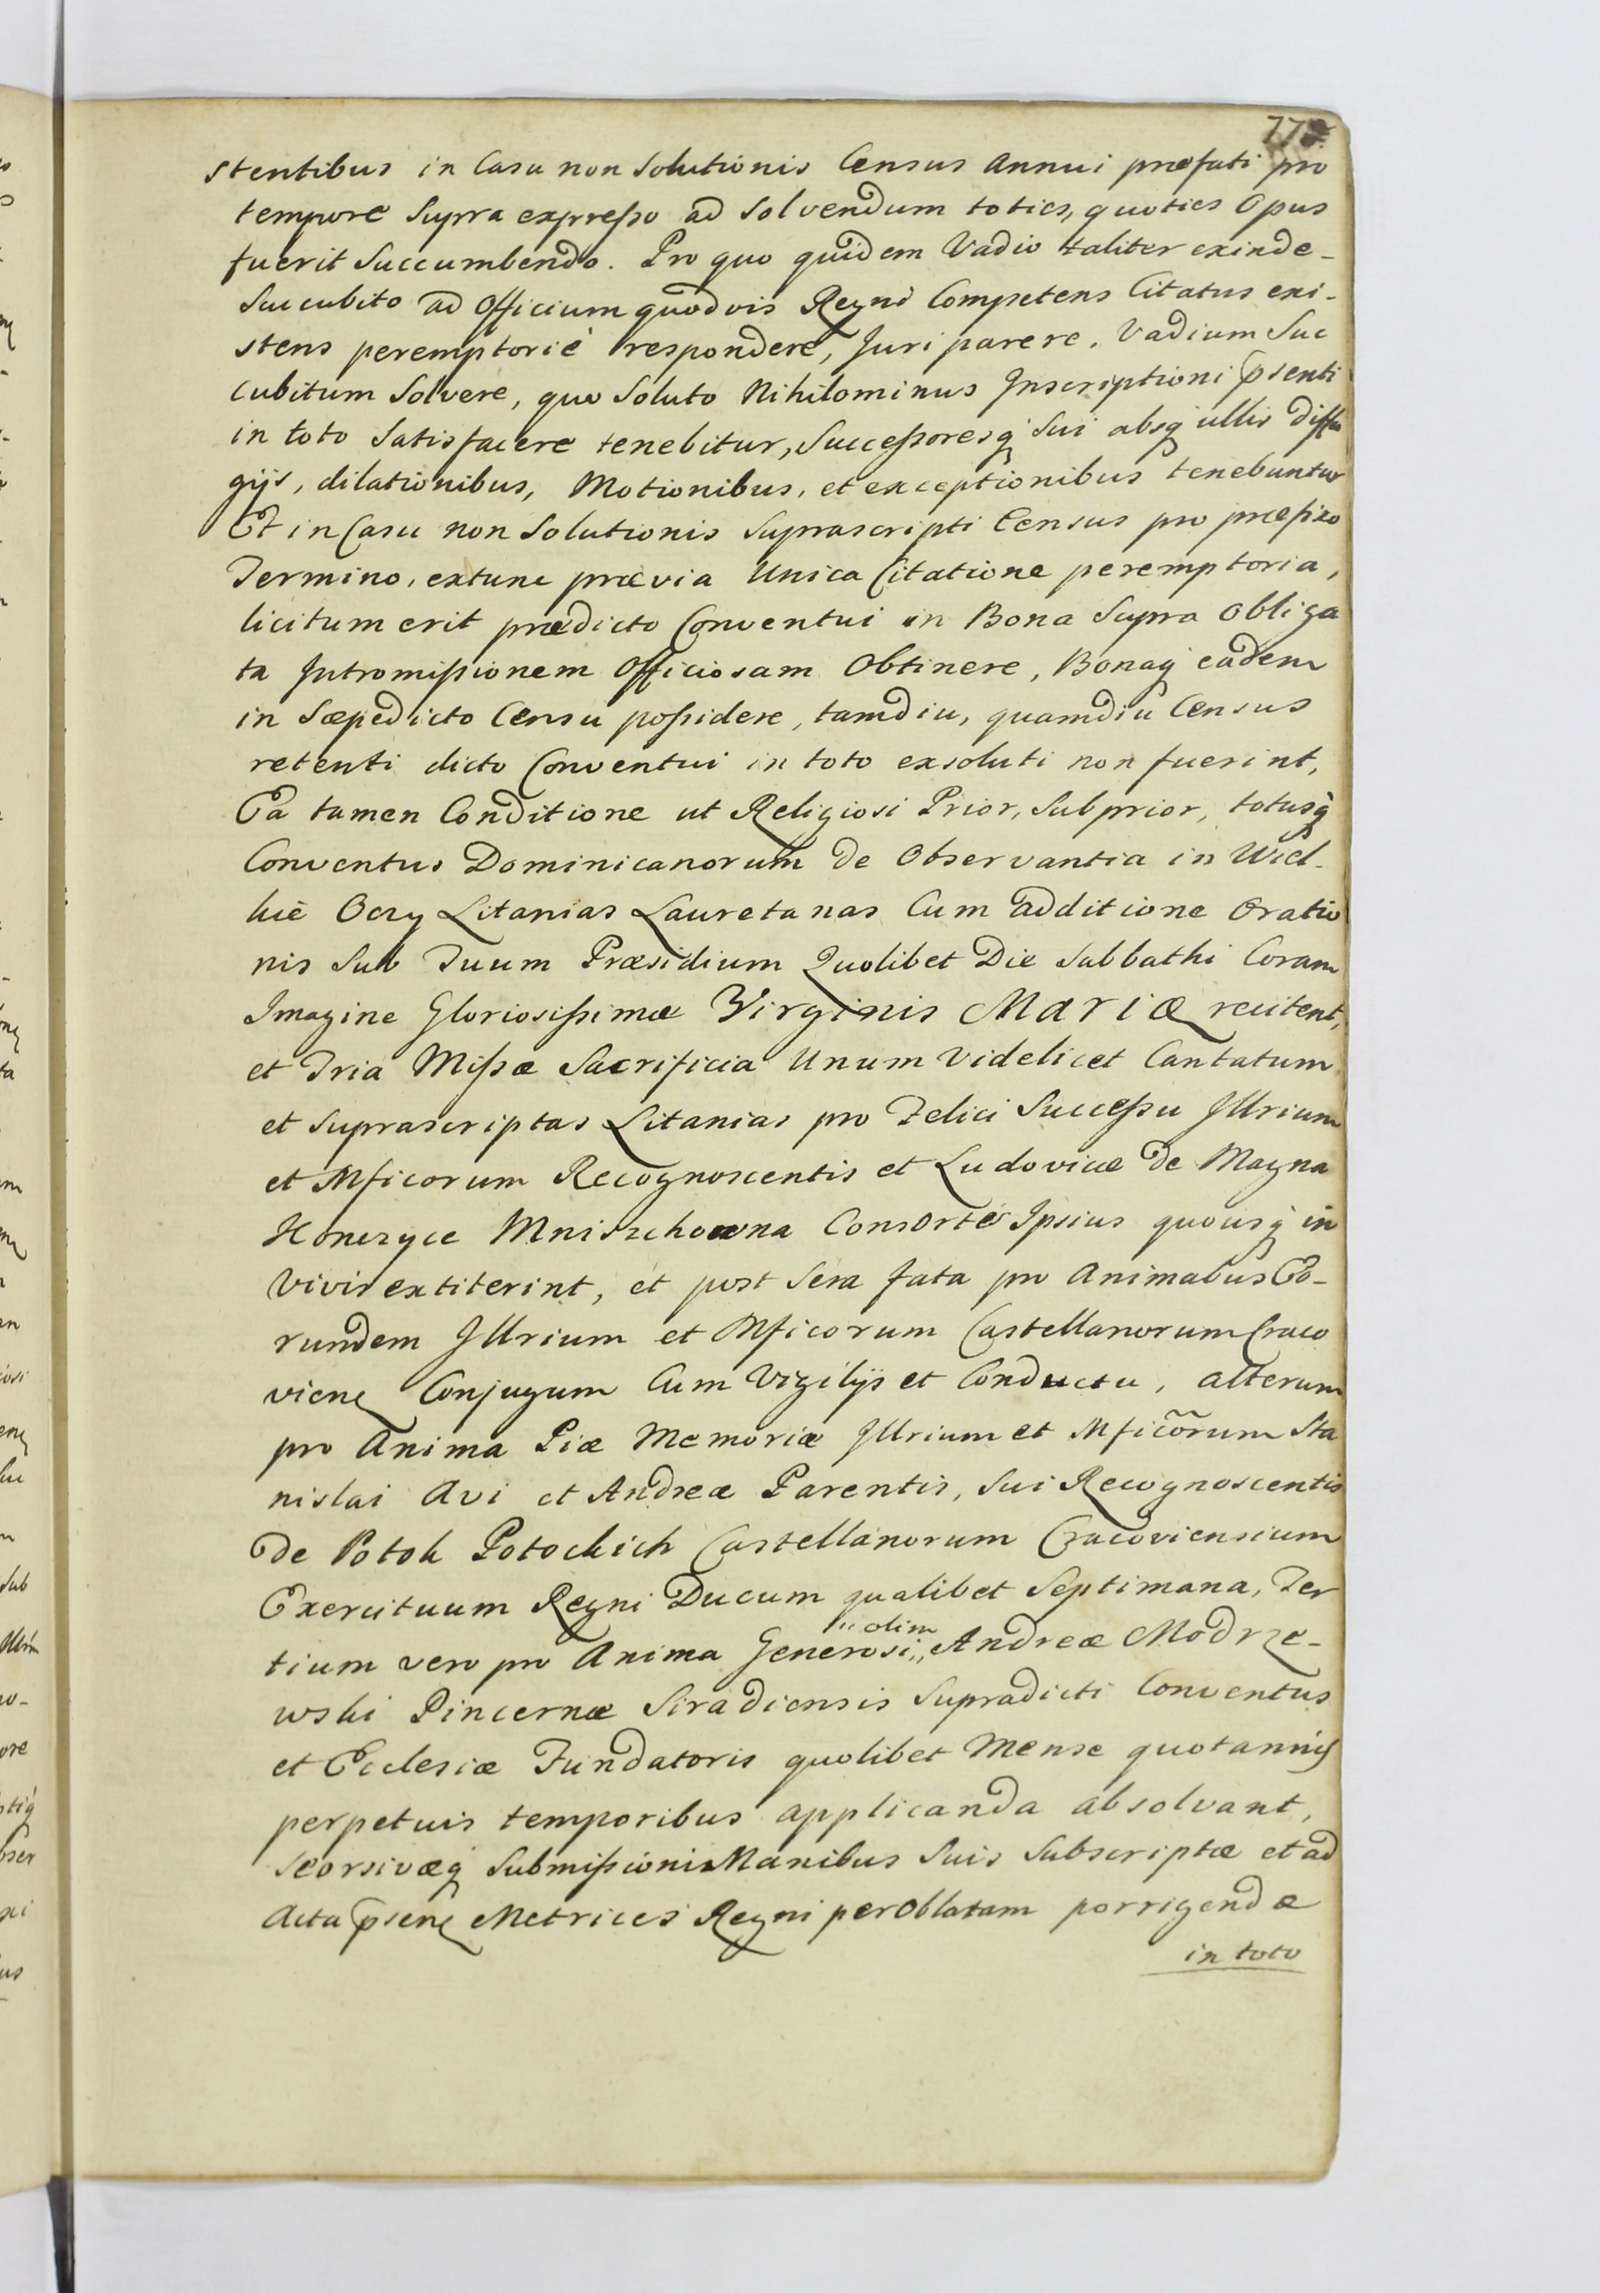 stentibus in Casu non Solutionis Census Annui præfati pro
tempore Supra expresso ad Solvendum toties, quoties Opus
fuerit Succumbendo. Pro quo quidem Vadio taliter exinde-
Succubito ad Officium quodvis Regni Competens Citatus exi-
stens peremptoriè respondere, Juri parere, Vadium Suc
cubitum Solvere, quo Soluto Nihilominus Inscriptioni p̃senti
in toto Satisfacere tenebitur, Successoresq́ Sui absq́ ullis diffu
gijs, dilationibus, Motionibus, et exceptionibus tenebuntur
Et in Casu non Solutionis Suprascripti Census pro præfixo
Termino, extunc prævia Unica Citatione peremptoria,
licitum erit prædicto Conventui in Bona Supra Obliga
ta Intromissionem Officiosam Obtinere, Bonaq́ eadem
in Sæpedicto Censu possidere, tamdiu, quamdiu Census
retenti dicto Conventui in toto exsoluti non fuerint,
Ea tamen Conditione ut Religiosi Prior, Subprior, totusq́
Conventus Dominicanorum de Observantia in Wiel-
kie Oczy Litanias Lauretanas Cum additione Oratio
nis Sub Tuum Præsidium Quolibet Die Sabbathi Coram
Imagine Gloriosissimæ Virginis Mariæ recitent,
et Tria Missæ Sacrificia Unum Videlicet Cantatum
et Suprascriptas Litanias pro Felici Successu Illrium
et Mficorum Recognoscentis et Ludovicæ de Magna
Konczyce Mniszchowna Consortis Ipsius quousq́ in
Vivis extiterint, et post Sera fata pro Animabus Eo-
rundem Illrium et Mficorum Castellanorum Craco
vienę Conjugum Cum Vigilijs et Conductu, alterum
pro Anima Piæ Memoriæ Illrium et Mficõrum Sta
nislai Avi et Andreæ Parentis, Sui Recognoscentis
de Potok Potockich Castellanorum Cracoviensium
Exercituum Regni Ducum qualibet Septimana, Ter
tium vero pro Anima Generosi olim Andreæ Modrze-
wski Pincernæ Siradiensis Supradicti Conventus
et Ecclesiæ Fundatoris quolibet Mense quotannis
perpetuis temporibus applicanda absolvant,
Seorsivæq́ Submissioni Manibus Suis Subscriptæ et ad
Acta p̃senę Metrices Regni per Oblatam porrigendæ
in toto